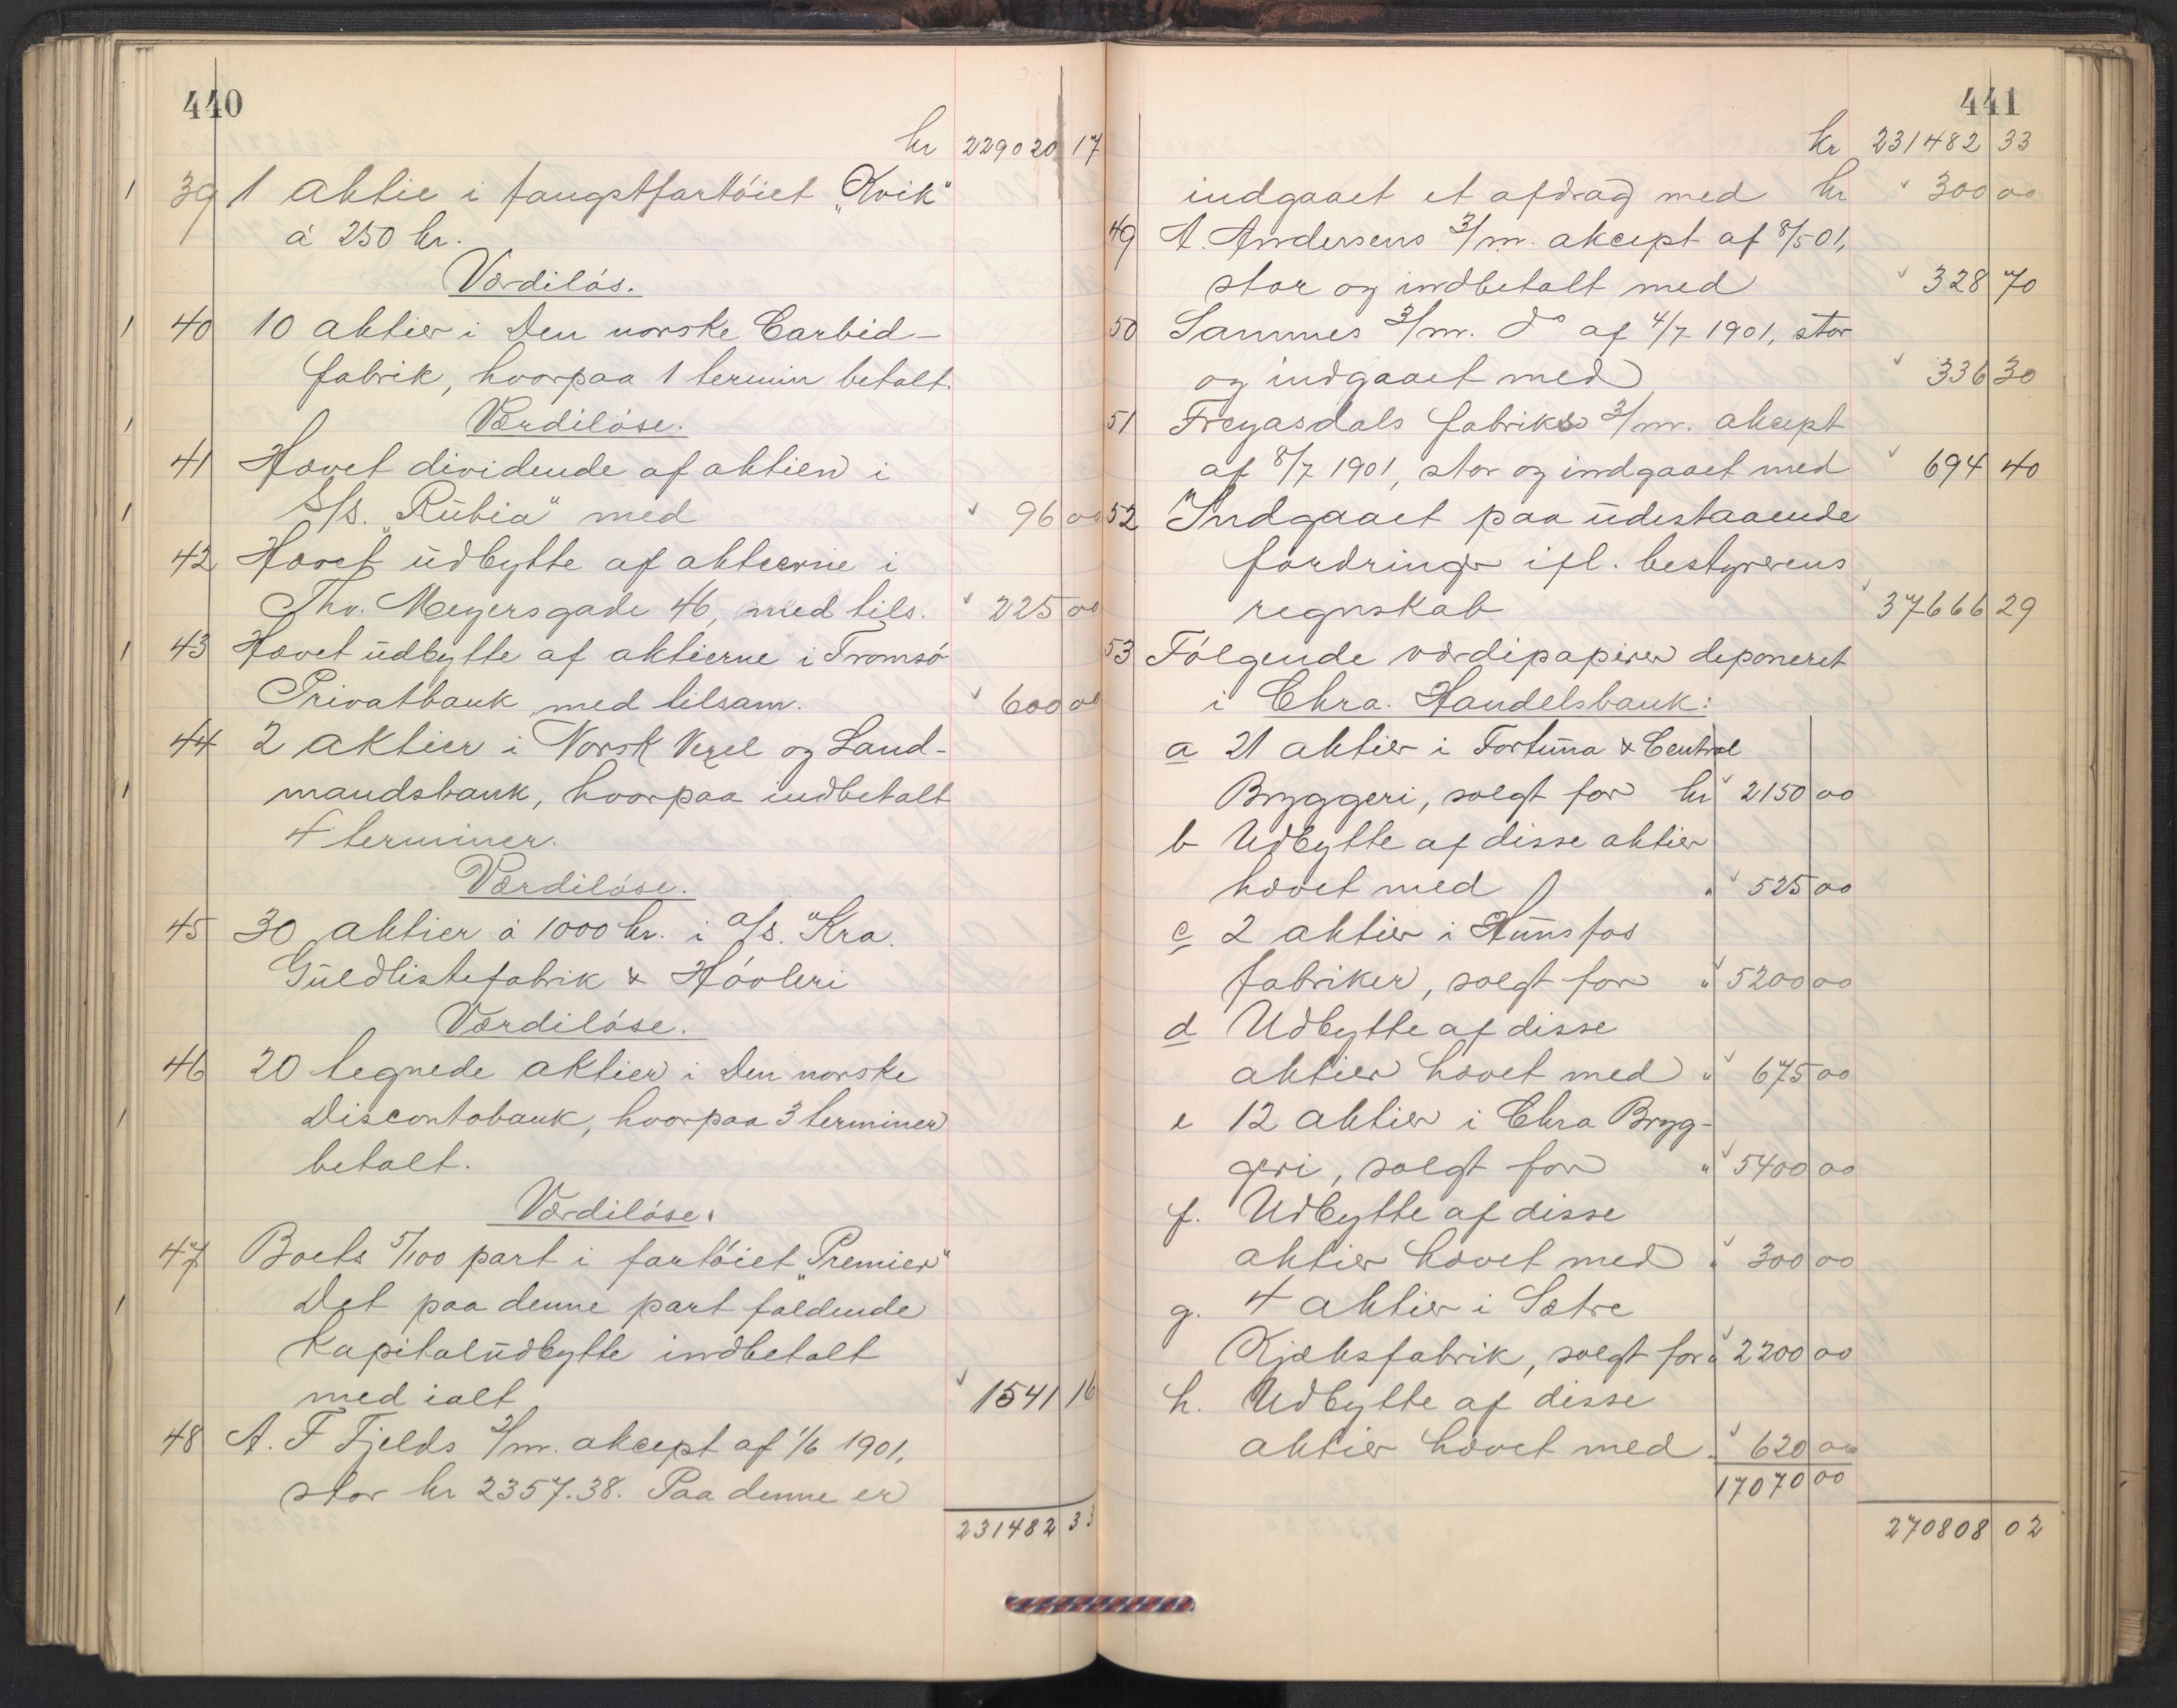 440
kr 229020 17
39 1 aktie i fangstfartöiet „Kvik"
á 250 kr.
Værdilös.
40 10 aktier i Den norske Carbid-
fabrik, hvorpaa 1 termin betalt.
Værdilöse.
41 Hævet dividende af aktien i
S/S. „Rubia" med 96 00
42 Hævet udbytte af aktierne i
Thv. Meyersgade 46, med tils. 225 00
43 Hævet udbytte af aktierne i Tromsö
Privatbank med tilsam. 600 00
44 2 aktier i Norsk Vexel og Land-
mandsbank, hvorpaa indbetalt
4 terminer.
Værdilöse.
45 30 aktier á 1000 kr. i A/S. Kra.
Guldlistefabrik & Hövleri
Værdilöse.
46 20 tegnede aktier i Den norske
Discontobank, hvorpaa 3 terminer
betalt.
Værdilöse.
47 Boets 5/100 part i fartöiet „Premier"
Det paa denne part faldende
Kapitaludbytte indbetalt
med ialt 1541 16
48 A. F Fjelds 3/m. akcept af 1/6 1901,
stor kr 2357.38. Paa denne er
231482 33
441
kr 231482 33
indgaaet et afdrag med kr 300 00
49 A. Andersens 3/m. akcept af 8/5 01,
stor og indbetalt med 328 70
50 Sammes 3/m. do af 4/7 1901, stor
og indgaaet med 336 30
51 Freyasdals fabrikers 3/m. akcept
af 8/7 1901, stor og indgaaet med 694 40
52 Indgaaet paa udestaaende
fordringer ifl. bestyrerens
regnskab 37666 29
53 Fölgende værdipapirer deponeret
i Chra. Handelsbank:
a 21 aktier i Fortuna & Central
Bryggeri, solgt for kr 2150 00
b Udbytte af disse aktier
hævet med " 525 00
c 2 aktier i Hunsfos
fabriker, solgt for " 5200 00
d Udbytte af disse
aktier hævet med " 675 00
e 12 aktier i Chra Bryg-
geri, solgt for " 5400 00
f. Udbytte af disse
aktier hævet med " 300 00
g. 4 aktier i Sætre
Kjæksfabrik, solgt for " 2200 00
h. Udbytte af disse
aktier hævet med " 620 00
17070 00
270808 02